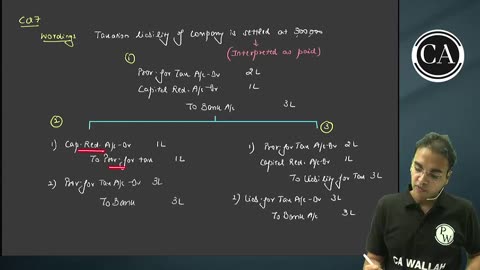 CQ 7
Wordings
Taxation liability of company is settled at 300000
(Interpreted as paid)
①
Prov. for Tax A/c-Dr 2L
Capital Red. A/c-Dr 1L
To Bank A/c 3L
②
1) Cap. Red. A/c-Dr 1L
To Prov. for tax 1L
2) Prov. for Tax A/c-Dr 3L
To Bank 3L
③
1) Prov for Tax A/c-Dr 2L
Capital Red. A/c-Dr 1L
To Liability for Tax 3L
2) Liab. for Tax A/c-Dr 3L
To Bank A/c 3L
CA
PW
CA WALLAH